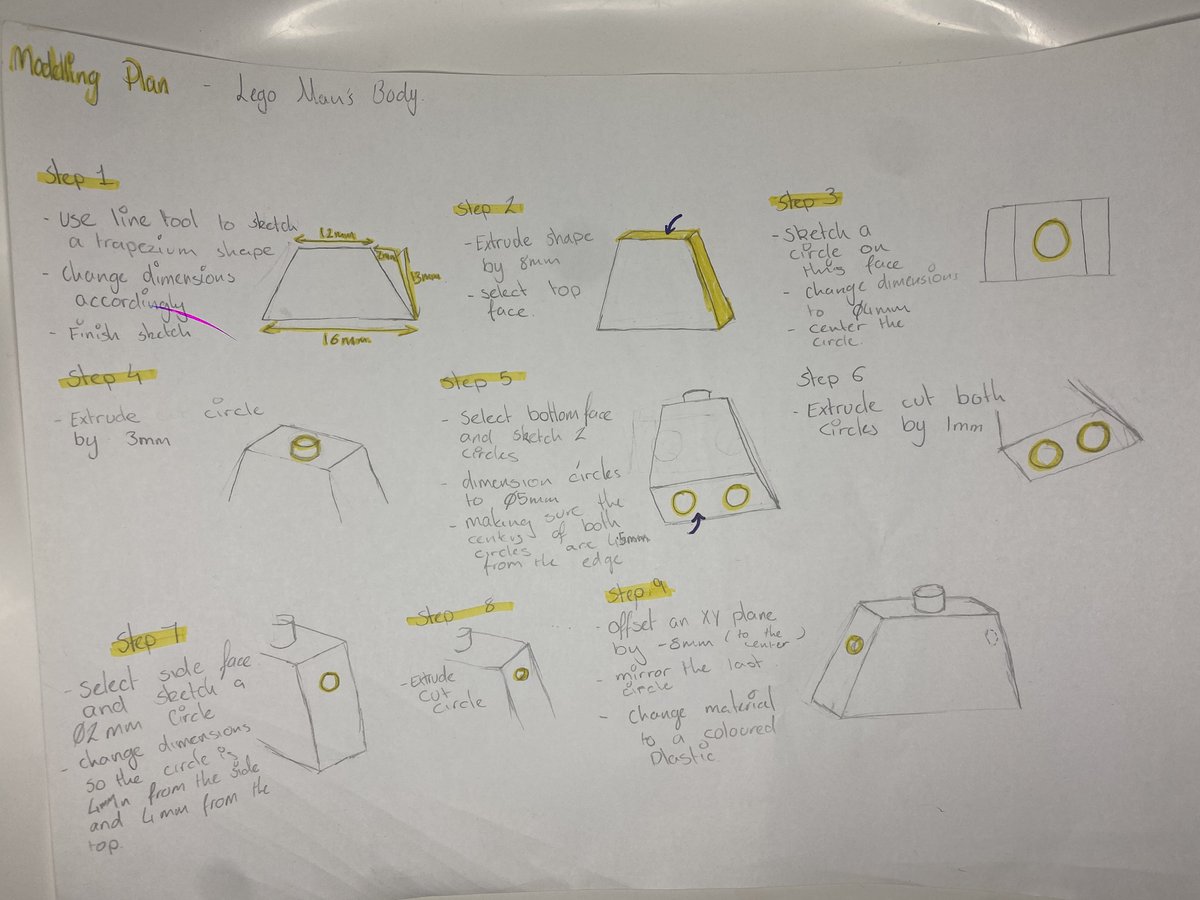 Modelling Plan - Lego Man's Body.
Step 1
- Use line tool to sketch
a trapezium shape
- change dimensions
accordingly
- Finish sketch
12mm
2mm
13mm
16mm
Step 2
- Extrude shape
by 8mm
- select top
face.
Step 3
- Sketch a
circle on
this face
- change dimensions
to Ø4mm
- center the
circle.
Step 4
- Extrude circle
by 3mm
Step 5
- Select bottom face
and sketch 2
circles
- dimension circles
to Ø5mm
- making sure the
centers of both
circles are 4.5mm
from the edge
Step 6
- Extrude cut both
circles by 1mm
Step 7
- Select side face
and sketch a
Ø2mm circle
- change dimensions
so the circle is
4mm from the side
and 4mm from the
top.
Step 8
- Extrude
cut
circle
Step 9
- Offset an XY plane
by -8mm (to the
center)
- mirror the last
circle
- change material
to a coloured
Plastic